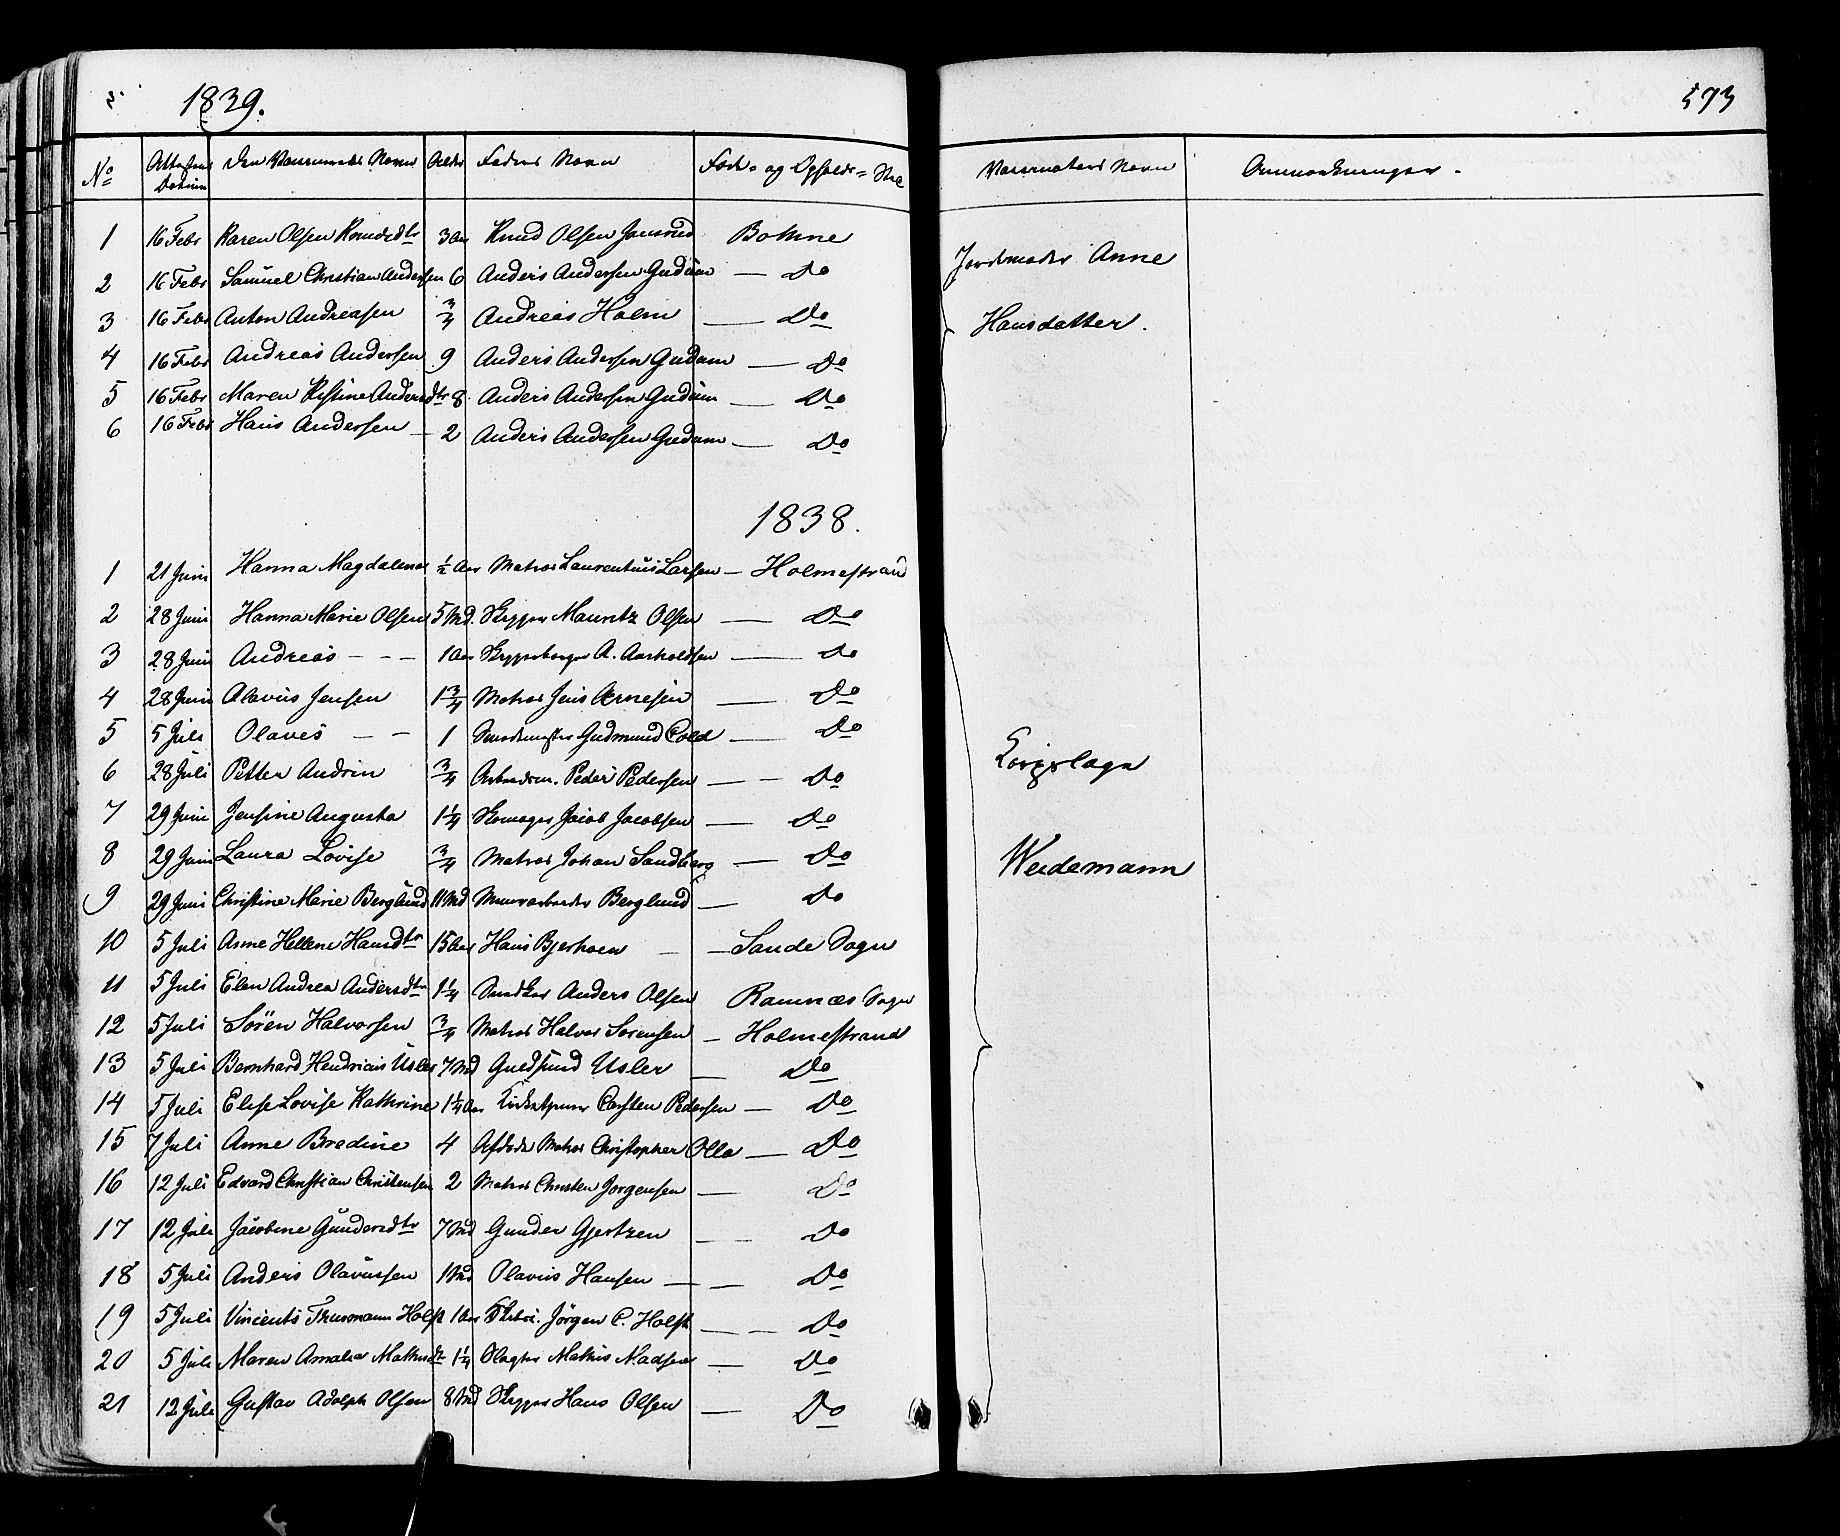 1839.
573
No Attestens Datum Den Vaccineredes Navn Alder Faders Navn Føde- og Opholds-Sted Vaccinateurs Navn Anmærkninger.
1 16 Febr Karen Olsen Knudsdtr 3 Aar Knud Olsen Bothne
2 16 Febr Samuel Christian Andersen 6 Anders Andersen Gudum — Do
Jordmoder Anne
3 16 Febr Anton Andreasen 3/4 Andreas Holm — Do
Hansdatter.
4 16 Febr Andreas Andersen 9 Anders Andersen Gudum — Do
5 16 Febr Maren Kistine Andersdtr 8 Anders Andersen Gudum — Do
6 16 Febr Hans Andersen — 2 Anders Andersen Gudum — Do
1838.
1 21 Juni Hanna Magdalena 1/2 Aar Matros Laurentius Larsen — Holmestrand
2 28 Juni Hanna Marie Olsen 5 Md. Skipper Mauritz Olsen — Do
3 28 Juni Andreas - - - 1 Aar A. — Do
4 28 Juni Olavus Jensen 1 3/4 Matros Jens Arnesen — Do
5 5 Juli Olaves — — 1 Gudmund Cold — Do
6 28 Juli Petter Andrin 3/4 Peder Pedersen — Do
Weidemann
7 29 Juni Jensine Augusta 1 1/4 Skomager Jacob Jacobsen — Do
8 29 Juni Laura Lovise 3/4 Matros Johan Sandberg — Do
9 29 Juni Christine Marie Berglund 11 Md Berglund — Do
10 5 Juli Anne Hellene Hansdtr 15 Aar Hans Bjerkoen — Sande Sogn
11 5 Juli Elen Andrea Andersdtr 1 1/4 Anders Olsen Ramnæs Sogn
12 5 Juli Sören Halvorsen 3/4 Matros Halvor Sørensen — Holmestrand
13 5 Juli Bernhard Hendrichs Usler 7 Md Usler — Do
14 5 Juli Elise Lovise Kathrine 1 1/4 Aar Carsten Pedersen — Do
15 7 Juli Anne Bredine 4 Afdøde Matros Christopher Olla — Do
16 12 Juli Edvard Christian Christensen 2 Matros Christen Jorgensen — Do
17 12 Juli Jacobine Gundersdtr 7 Md Gunder Gjertzen — Do
18 5 Juli Anders Olavussen 1 Md Olavus Hansen — Do
19 5 Juli Vincents Thurmann Holst 1 Aar Jörgen C. Holst — Do
20 5 Juli Maren Amalia Mathisdtr 1 1/4 Slagter Mathis Madsen — Do
21 12 Juli Gustav Adolph Olsen 8 Md Skipper Hans Olsen — Do